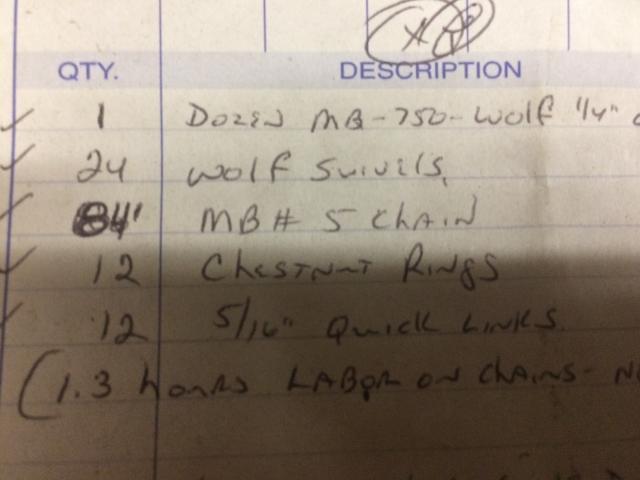 QTY. DESCRIPTION
1 Dozen MB-750-Wolf 1/4"
24 Wolf Swivels
84' MB# 5 Chain
12 Chestnut Rings
12 5/16" Quick Links
(1.3 hours LABOR ON Chains-